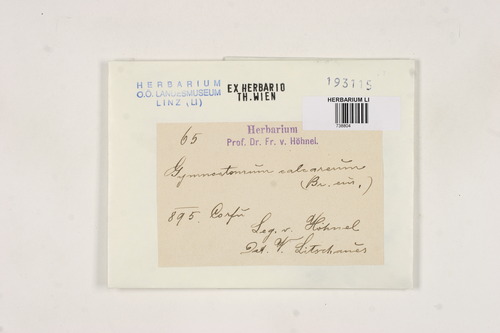 HERBARIUM
O.Ö. LANDESMUSEUM
LINZ (LI)
EX HERBARIO
TH. WIEN
193115
HERBARIUM LI
738804
65
Herbarium
Prof. Dr. Fr. v. Höhnel.
Gymnostomum calcareum
(Br. eur.)
895. Corfu
Leg. v. Höhnel
Det. V. Litschauer